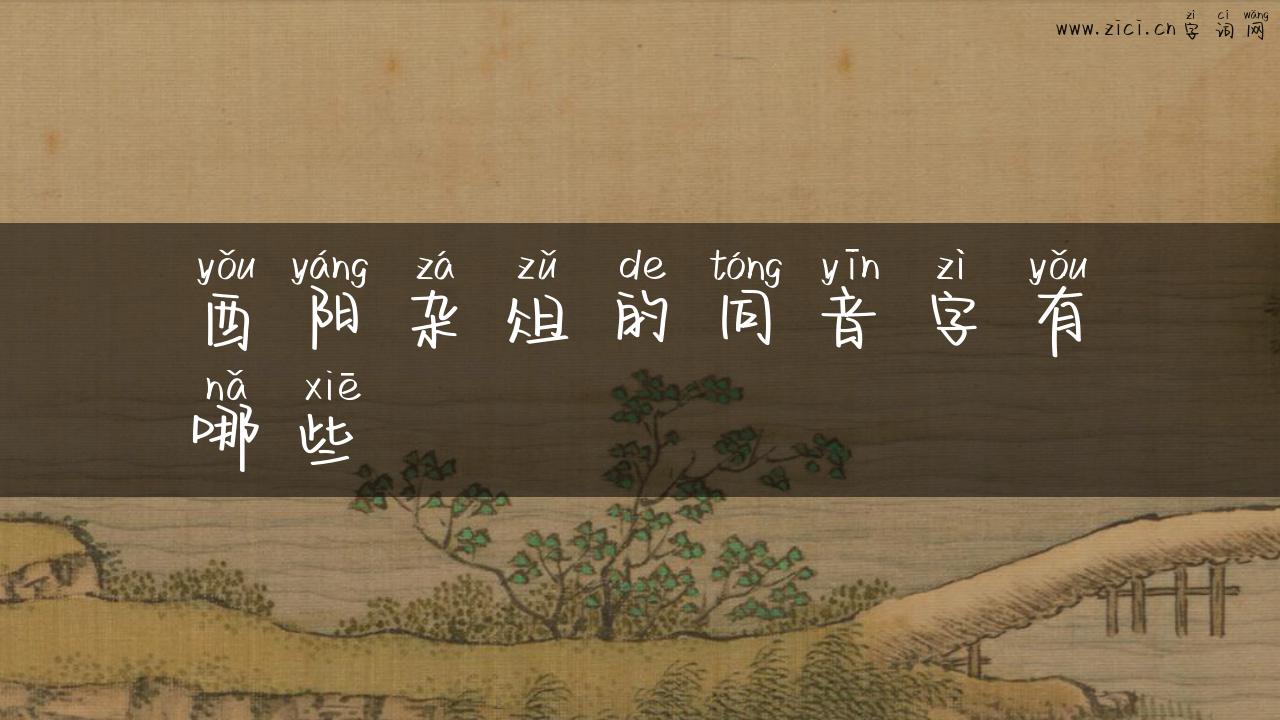 zì cí wǎng
www.zici.cn 字词网
yǒu yáng zá zǔ de tóng yīn zì yǒu
酉阳杂俎的同音字有
nǎ xiē
哪些